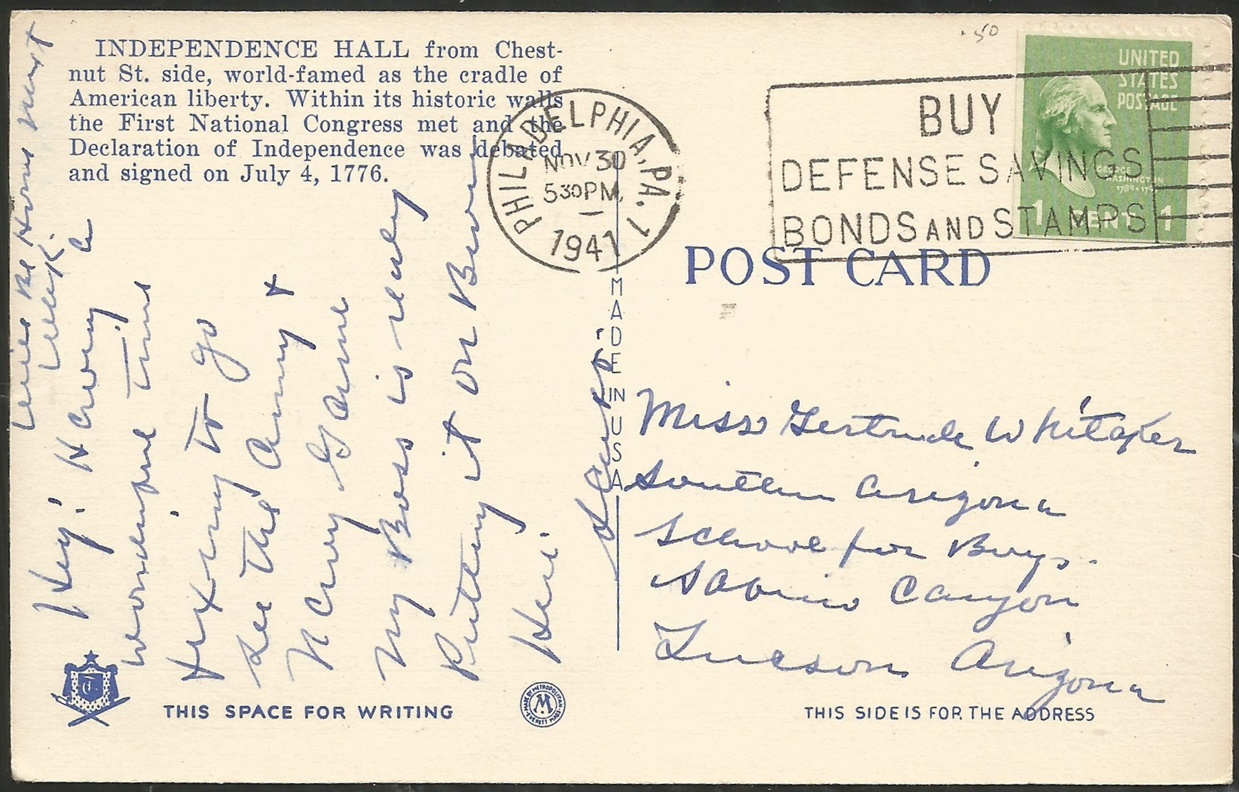 INDEPENDENCE HALL from Chest-
nut St. side, world-famed as the cradle of
American liberty. Within its historic walls
the First National Congress met and the
Declaration of Independence was debated
and signed on July 4, 1776.
Hey! Having a
wonderful time
fixing to go
see the Army &
Navy Game
My Boss is really
Putting it on Brown
Here.
Will Be Home next
week.
.50
PHILADELPHIA, PA. 1
NOV 30
530 PM
1941
BUY
DEFENSE SAVINGS
BONDS AND STAMPS
UNITED
STATES
POSTAGE
GEORGE
WASHINGTON
1789-17
1 CENT 1
POST CARD
MADE IN USA
Miss Gertrude Whitaker
Southern Arizona
School for Boys.
Sabino Canyon
Tucson Arizona
THIS SPACE FOR WRITING
MADE BY METROPOLITAN
M
EVERETT MASS
THIS SIDE IS FOR THE ADDRESS